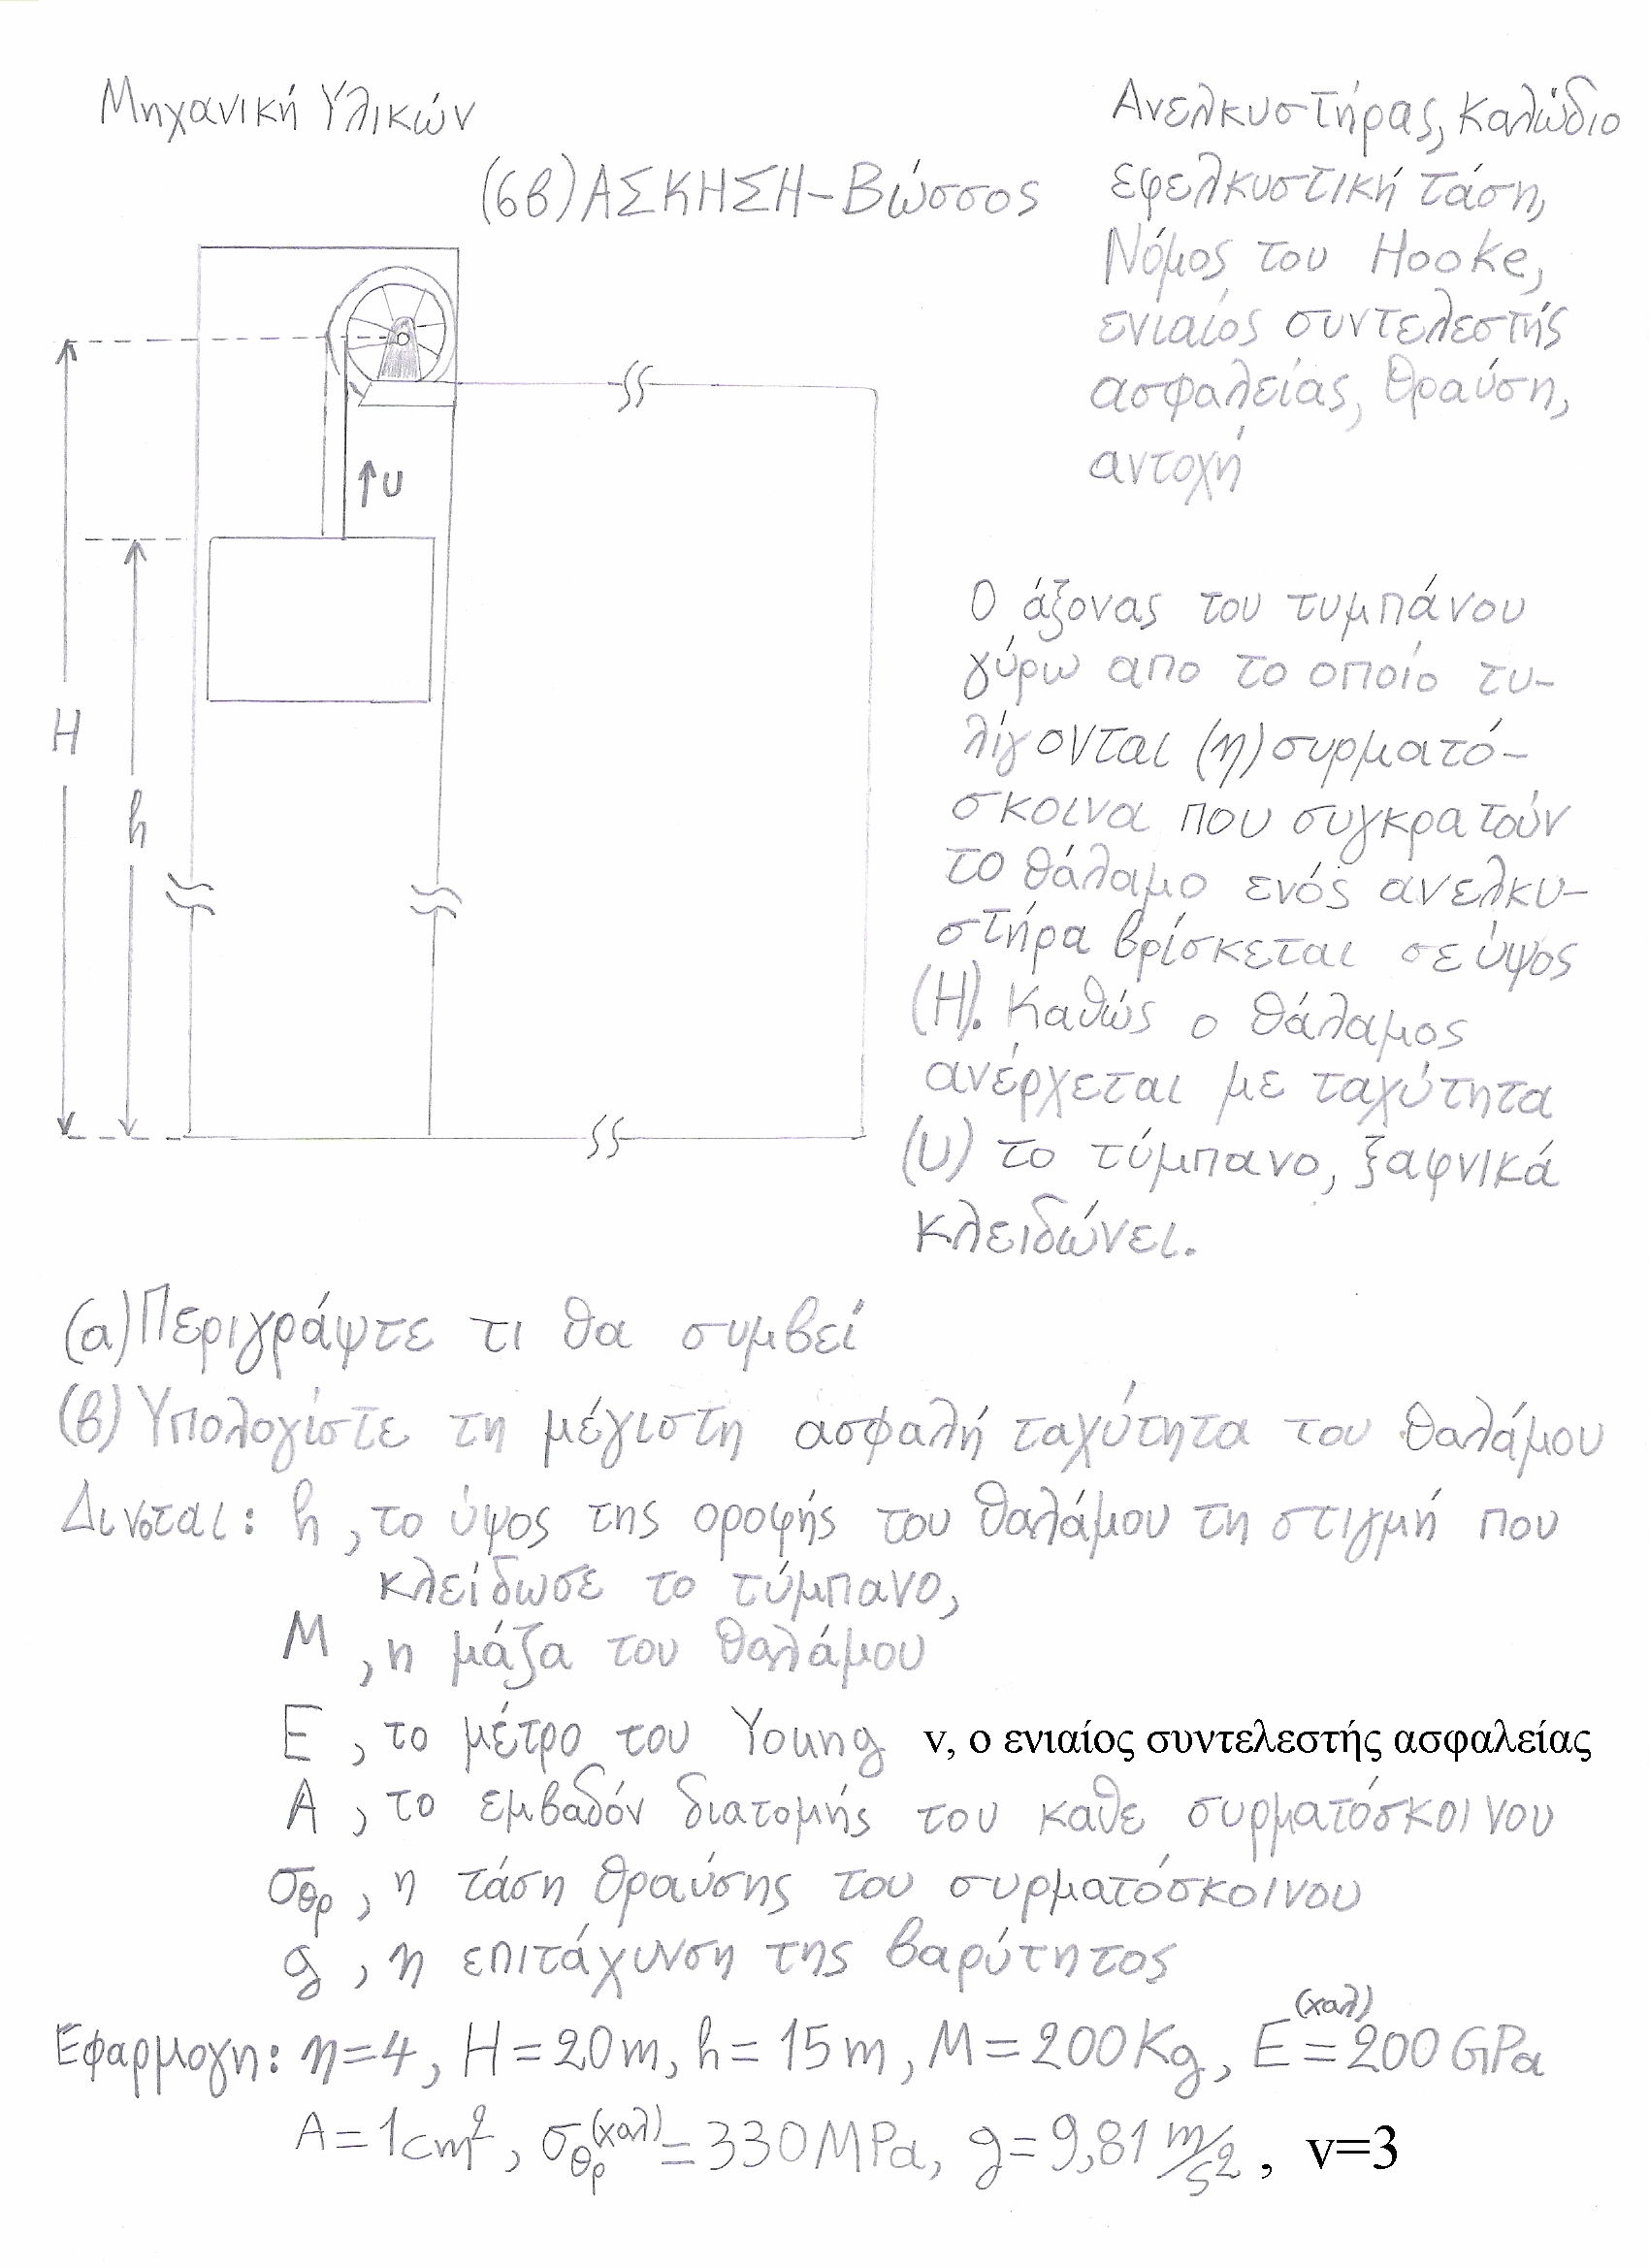 Μηχανική Υλικών
Ανελκυστήρας, Καλώδιο
(6β) ΑΣΚΗΣΗ-Βώσσος
εφελκυστική τάση,
Νόμος του Hooke,
ενιαίος συντελεστής
ασφαλείας, θραύση,
αντοχή
υ
H
h
Ο άξονας του τυμπάνου
γύρω απο το οποίο τυ-
λίγονται (η) συρματό-
σκοινα που συγκρατούν
το θάλαμο ενός ανελκυ-
στήρα βρίσκεται σε ύψος
(Η). Καθώς ο θάλαμος
ανέρχεται με ταχύτητα
(υ) το τύμπανο, ξαφνικά
κλειδώνει.
(α) Περιγράψτε τι θα συμβεί
(β) Υπολογίστε τη μέγιστη ασφαλή ταχύτητα του θαλάμου
Δίνοται: h, το ύψος της οροφής του θαλάμου τη στιγμή που
κλείδωσε το τύμπανο,
M, η μάζα του θαλάμου
E, το μέτρο του Young v, ο ενιαίος συντελεστής ασφαλείας
A, το εμβαδόν διατομής του καθε συρματόσκοινου
σθρ, η τάση θραύσης του συρματόσκοινου
g, η επιτάχυνση της βαρύτητος
Εφαρμογη: η=4, H=20m, h=15m, M=200Kg, E(χαλ)=200GPa
A=1cm², σθρ(χαλ)=330MPa, g=9,81 m/s2, v=3